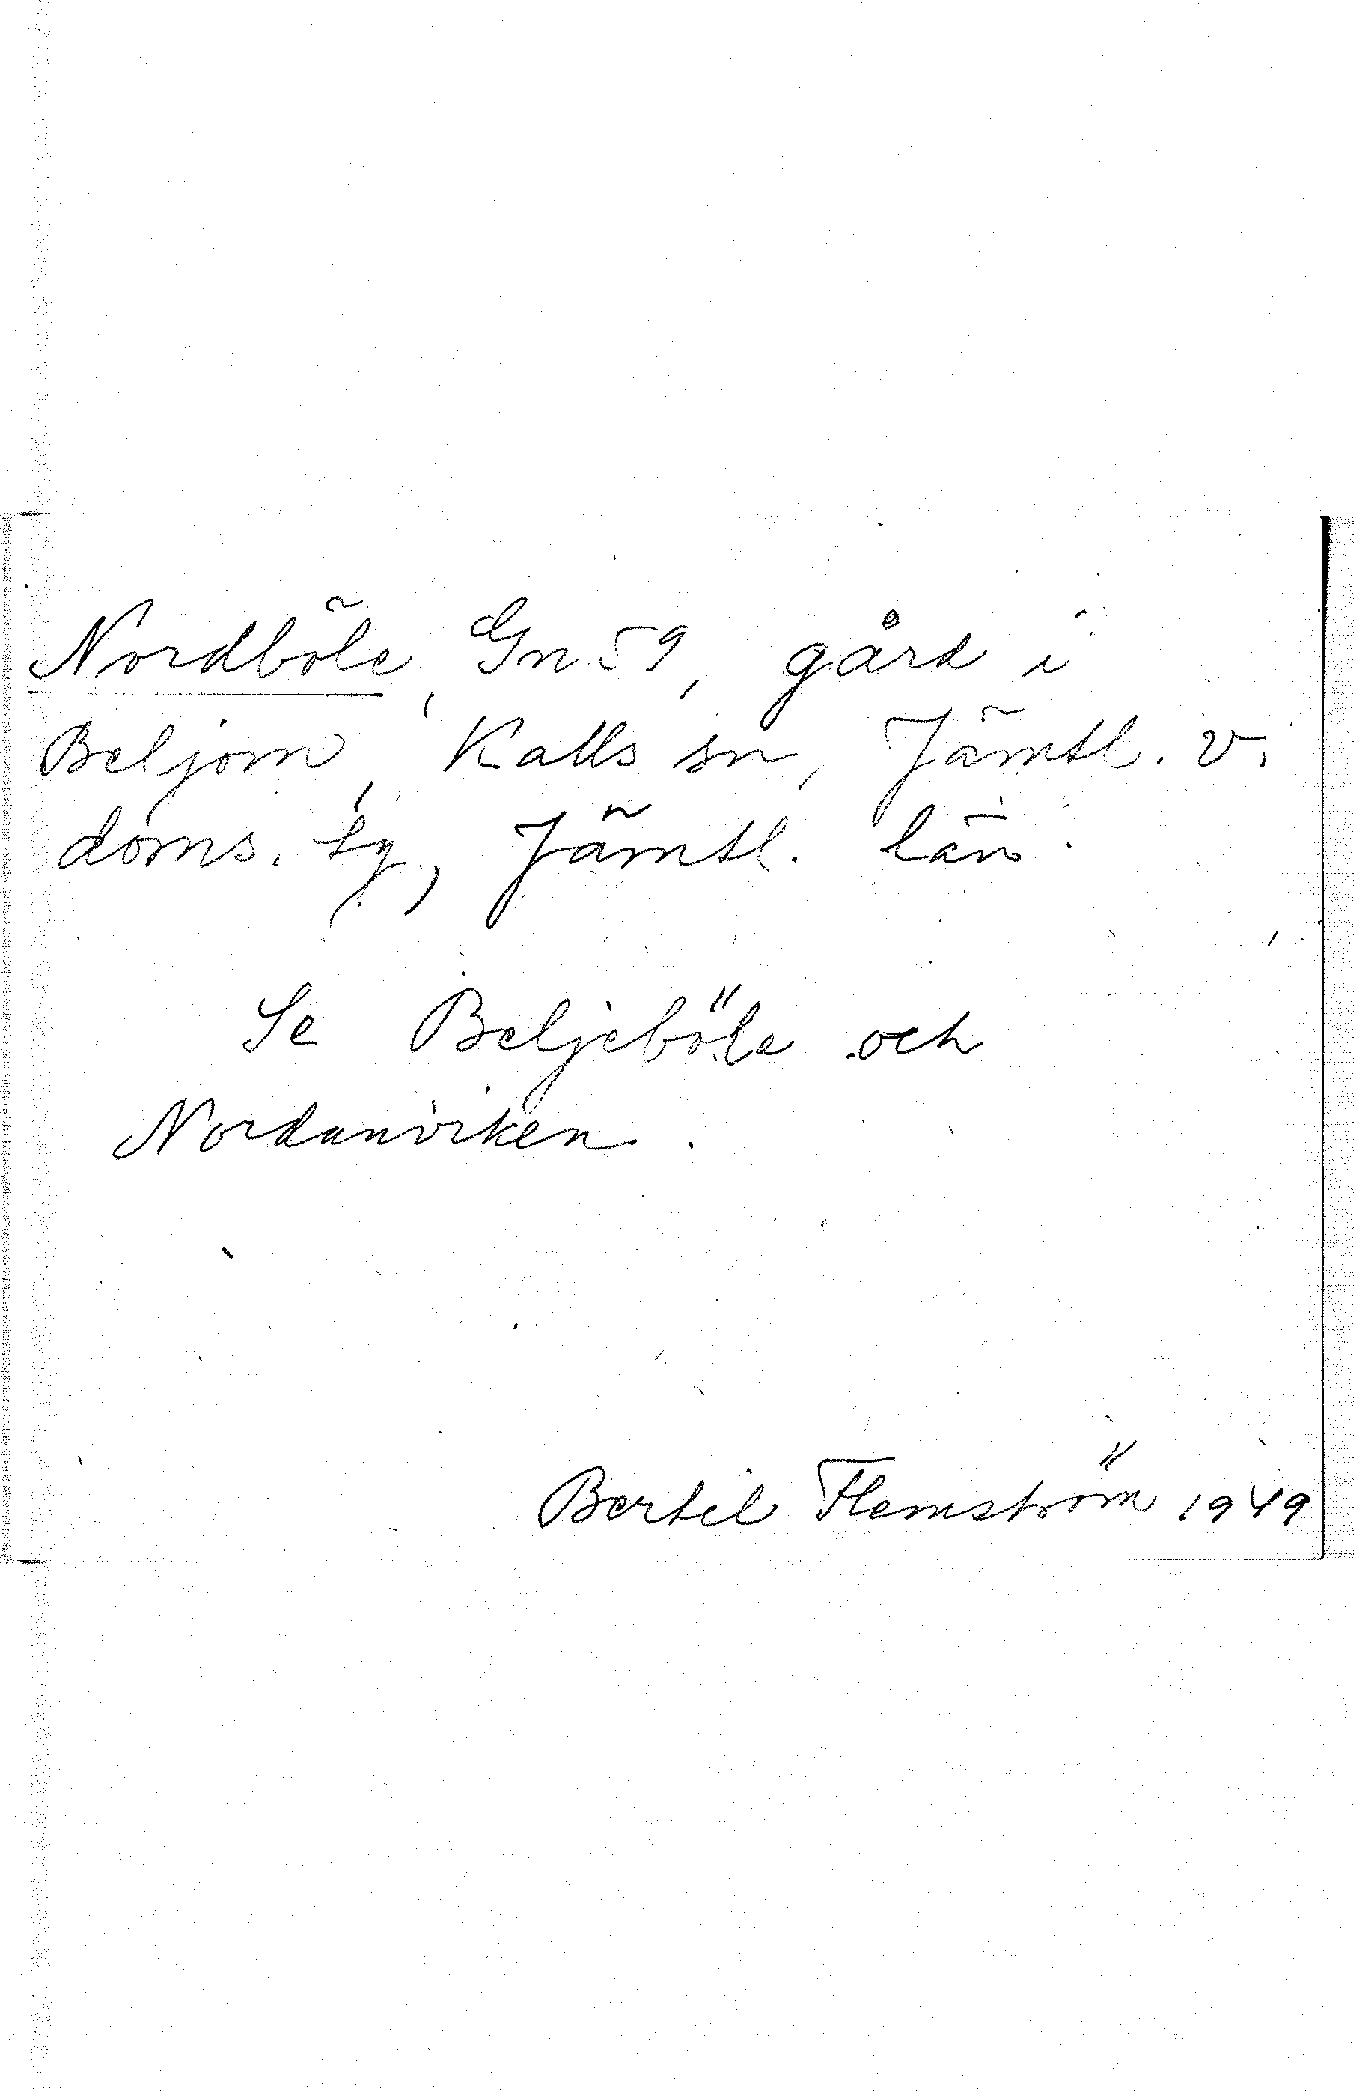 Nordböle, Gn 59, gård i
Beljom, Kalls sn, Jämtl. v.
doms. tg, Jämtl. län.
Se Beljeböle och
Nordanviken.
Bertil Flemström 1949